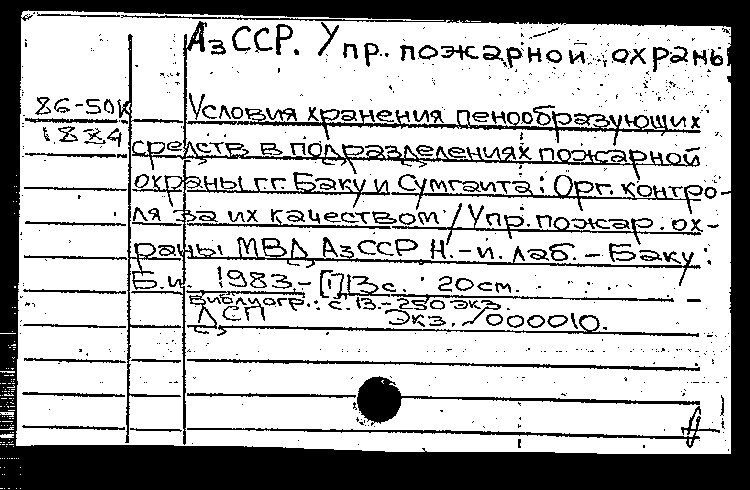 АзССР. Упр. пожарной охраны
86-50К
1884
Условия хранения пенообразующих
средств в подразделениях пожарной
охраны г.г. Баку и Сумгаита: Орг. контро-
ля за их качеством / Упр. пожар. ох-
раны МВД АзССР. Н.-и. лаб. - Баку:
Б.и., 1983. - [1]13 с. 20 см.
Библиогр.: с. 13. - 250 экз.
ДСП Экз. №000010.